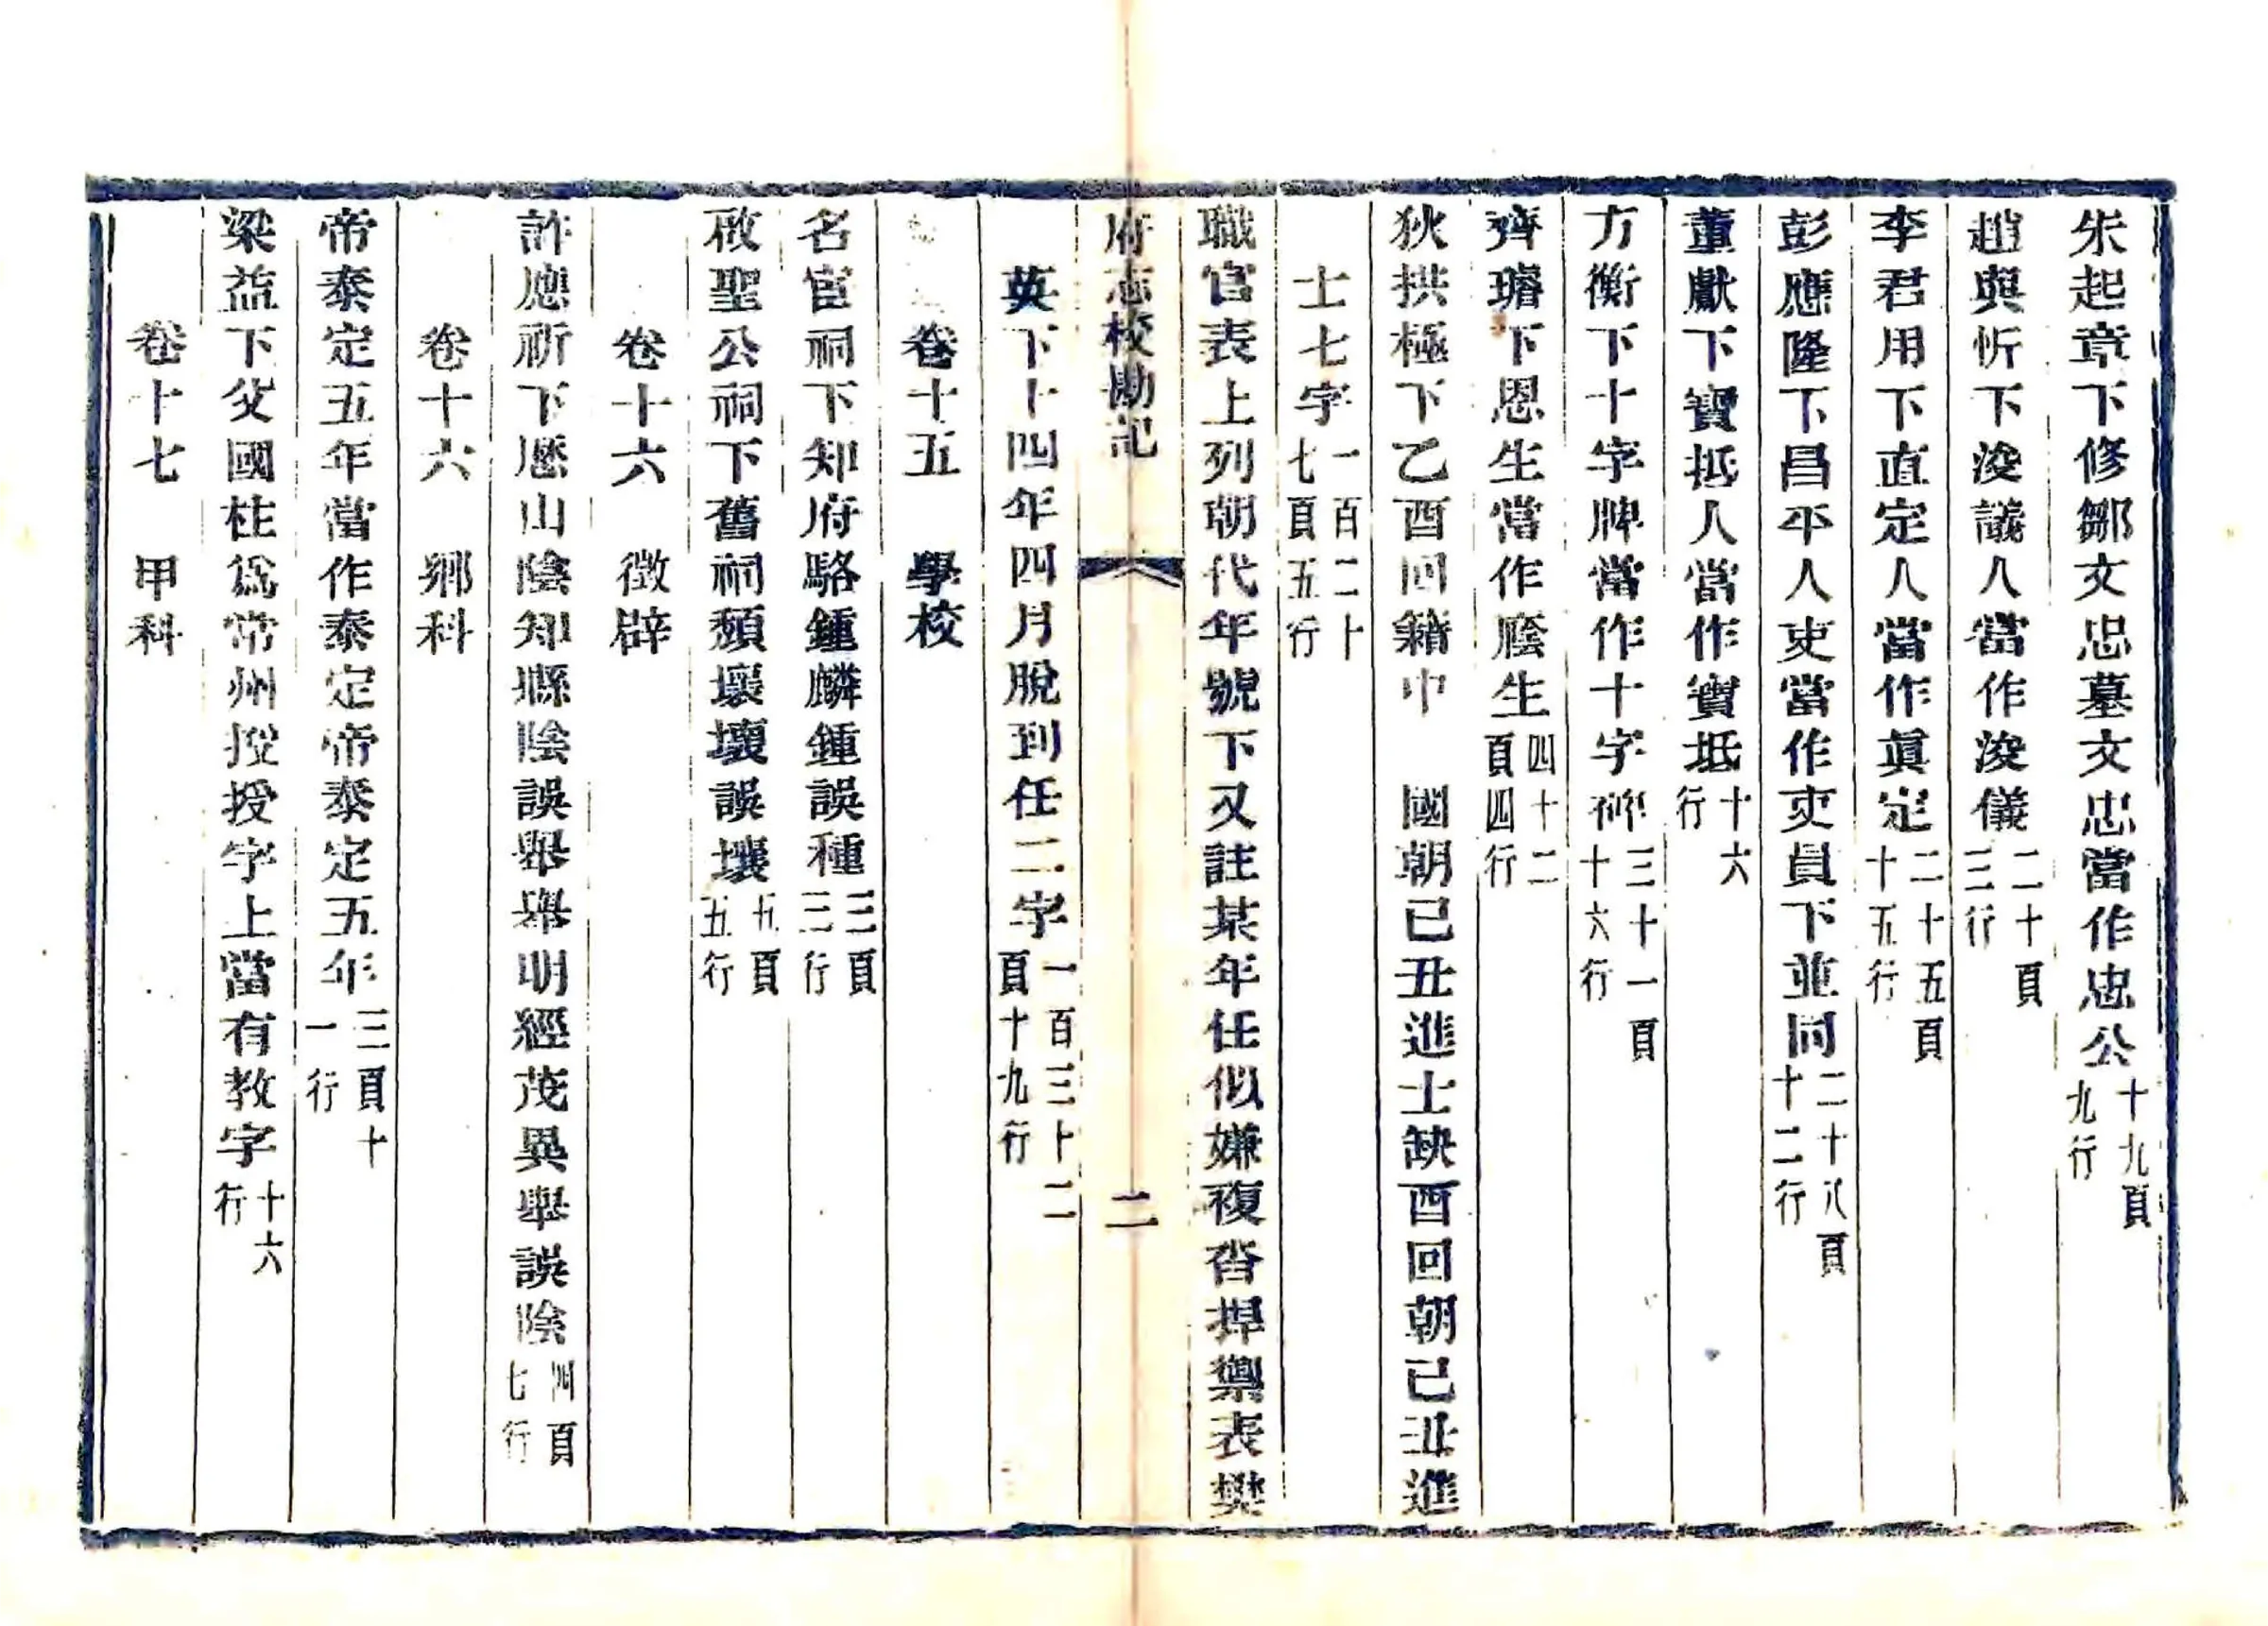 朱起章下修鄒文忠墓文忠當作忠公十九頁九行
趙與忻下浚議人當作浚儀二十頁三行
李君用下直定人當作眞定二十五頁十五行
彭應隆下昌平人吏當作吏員下並同二十八頁十二行
董獻下寶抵人當作寶坻十六行
方衡下十字牌當作十字碑三十一頁十六行
齊璿下恩生當作廕生四十二頁四行
狄拱極下乙酉回籍中　國朝已丑進士缺酉回朝已丑進
士七字一百二十七頁五行
職官表上列朝代年號下又註某年任似嫌複沓捍禦表樊
府志校勘記　二
英下十四年四月脫到任二字一百三十二頁十九行
卷十五　學校
名宦祠下知府駱鍾麟鍾誤種三頁三行
啟聖公祠下舊祠頹壞壞誤壤五頁五行
卷十六　徵辟
許應祈下歷山陰知縣陰誤舉舉明經茂異舉誤陰四頁七行
卷十六　鄉科
帝泰定五年當作泰定帝泰定五年三頁十一行
梁益下父國柱爲常州授授字上當有教字十六行
卷十七　甲科